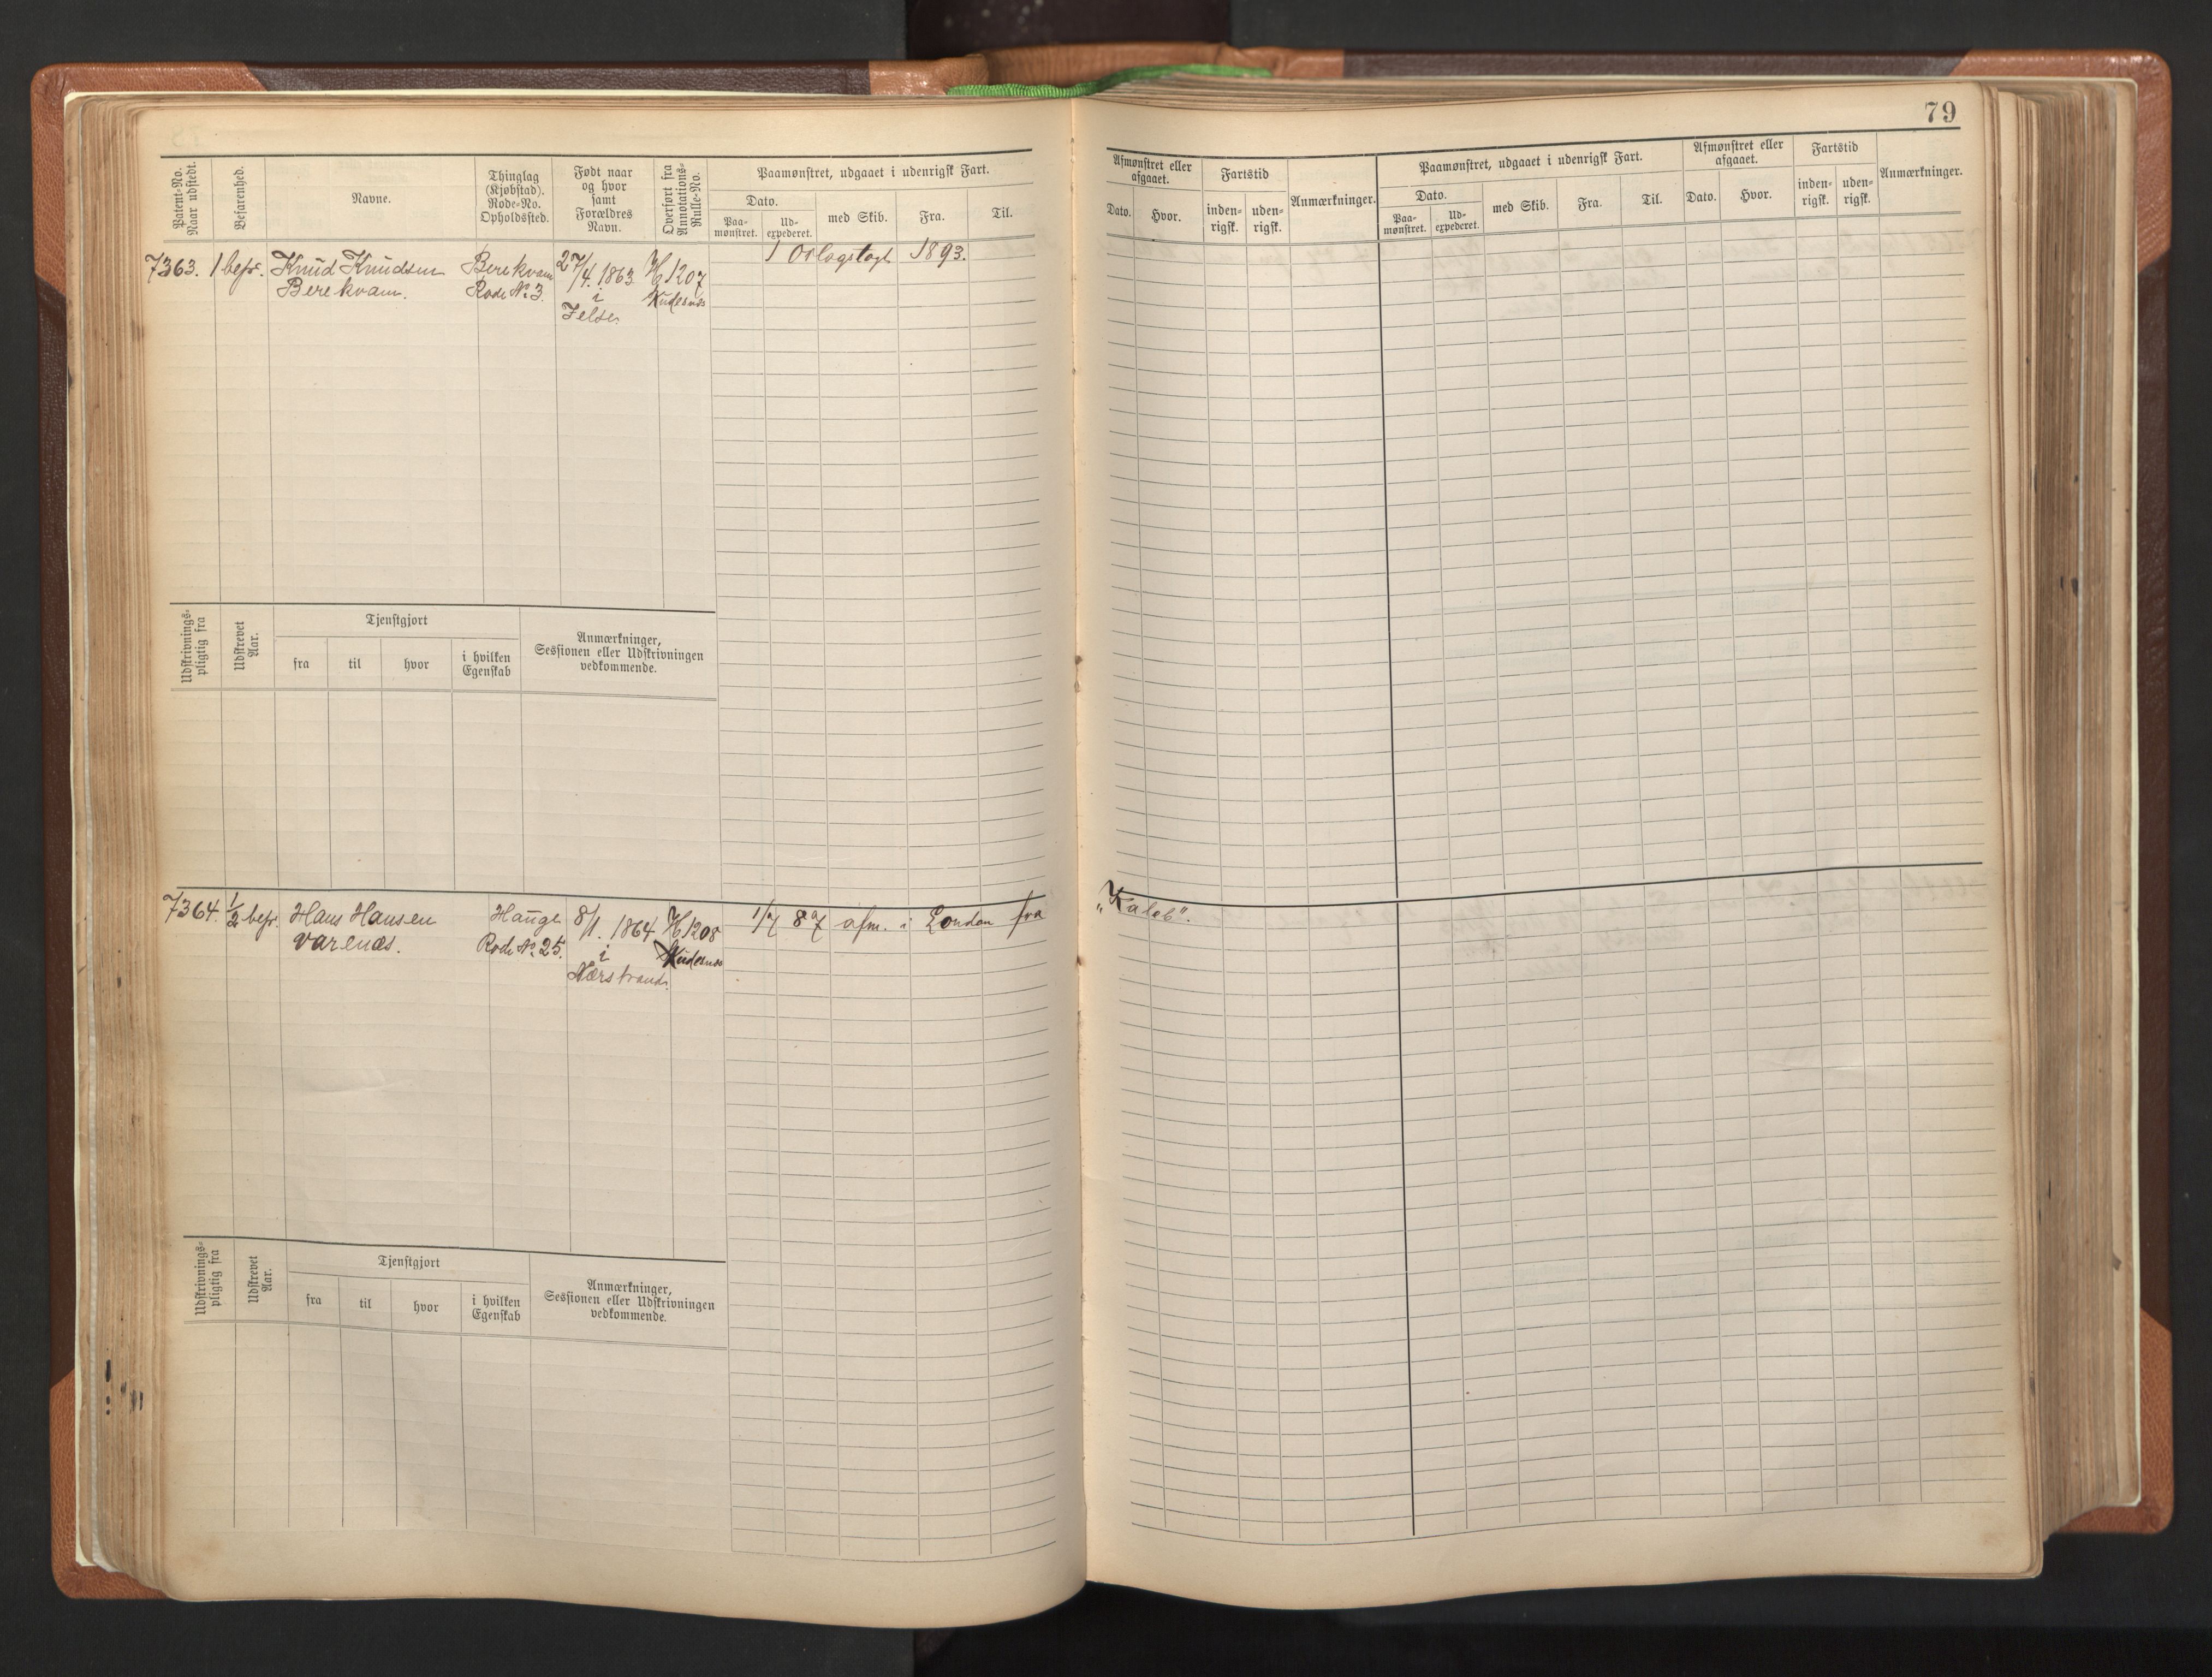 79
Patent-No. Naar udstedt.
Befarenhed.
Navne.
Thinglag (Kjøbstad). Rode-No. Opholdssted.
Født naar og hvor samt Forældres Navn.
Overført fra Annotations-Rulle-No.
Paamønstret, udgaaet i udenrigsk Fart.
Dato.
Paa-mønstret.
Ud-expederet.
med Skib.
Fra.
Til.
Afmønstret eller afgaaet.
Dato.
Hvor.
Fartstid
inden-rigsk.
uden-rigsk.
Anmærkninger.
Paamønstret, udgaaet i udenrigsk Fart.
Dato.
Paa-mønstret.
Ud-expederet.
med Skib.
Fra.
Til.
Afmønstret eller afgaaet.
Dato.
Hvor.
Fartstid
inden-rigsk.
uden-rigsk.
Anmærkninger.
7363. 1 befr. Knud Knudsen Berekvam 27/4. 1863 H 1207 1 Orlogstogt 1893.
Berekvam. Rode No 3. i
Jelse.
Udskrivnings-pligtig fra
Udskrevet Aar.
Tjenstgjort
fra
til
hvor
i hvilken Egenskab
Anmærkninger, Sessionen eller Udskrivningen vedkommende.
7364. 1/2 befr. Hans Hansen Hauge 8/1. 1864 H 1208 87 afm. i London fra „Kaleb".
Varenæs. Rode No. 25. i
Nærstrand.
Udskrivnings-pligtig fra
Udskrevet Aar.
Tjenstgjort
fra
til
hvor
i hvilken Egenskab
Anmærkninger, Sessionen eller Udskrivningen vedkommende.